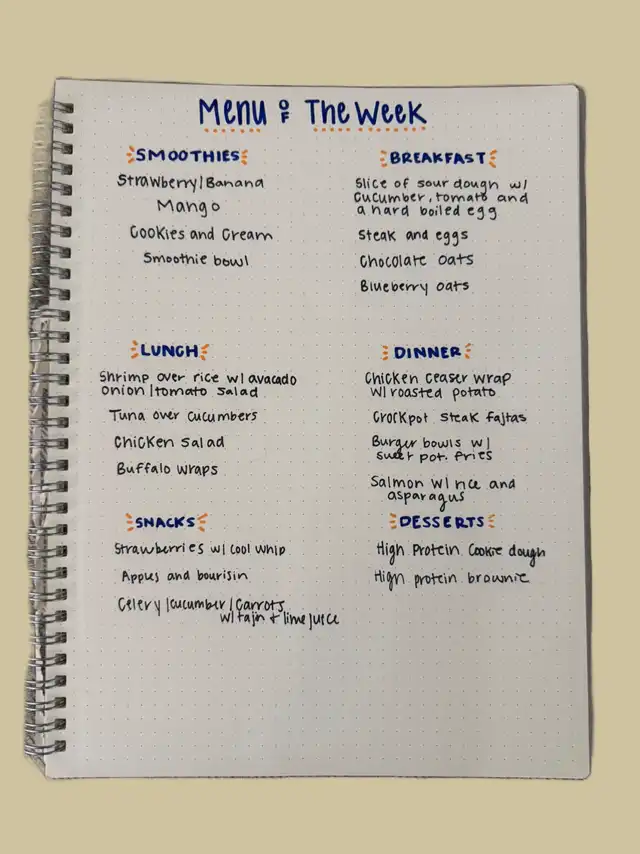 Menu OF The Week
SMOOTHIES
Strawberry/Banana
Mango
Cookies and Cream
Smoothie bowl
BREAKFAST
Slice of sour dough w/
cucumber, tomato and
a hard boiled egg
Steak and eggs
Chocolate oats
Blueberry oats
LUNCH
Shrimp over rice w/ avacado
onion/tomato salad
Tuna over cucumbers
Chicken Salad
Buffalo wraps
DINNER
Chicken ceaser wrap
w/ roasted potato
Crockpot steak fajitas
Burger bowls w/
sweet pot. fries
Salmon w/ rice and
asparagus
SNACKS
Strawberries w/ cool whip
Apples and boursin
Celery/cucumber/Carrots
w/ tajin + lime juice
DESSERTS
High Protein Cookie dough
High protein brownie